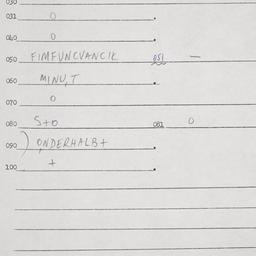 030
031 0
040 0
050 FIMFUNCVANCIK 051 –
060 MINU,T
070 0
080 S+O 081 0
090 ) ONDERHALB+
100 +